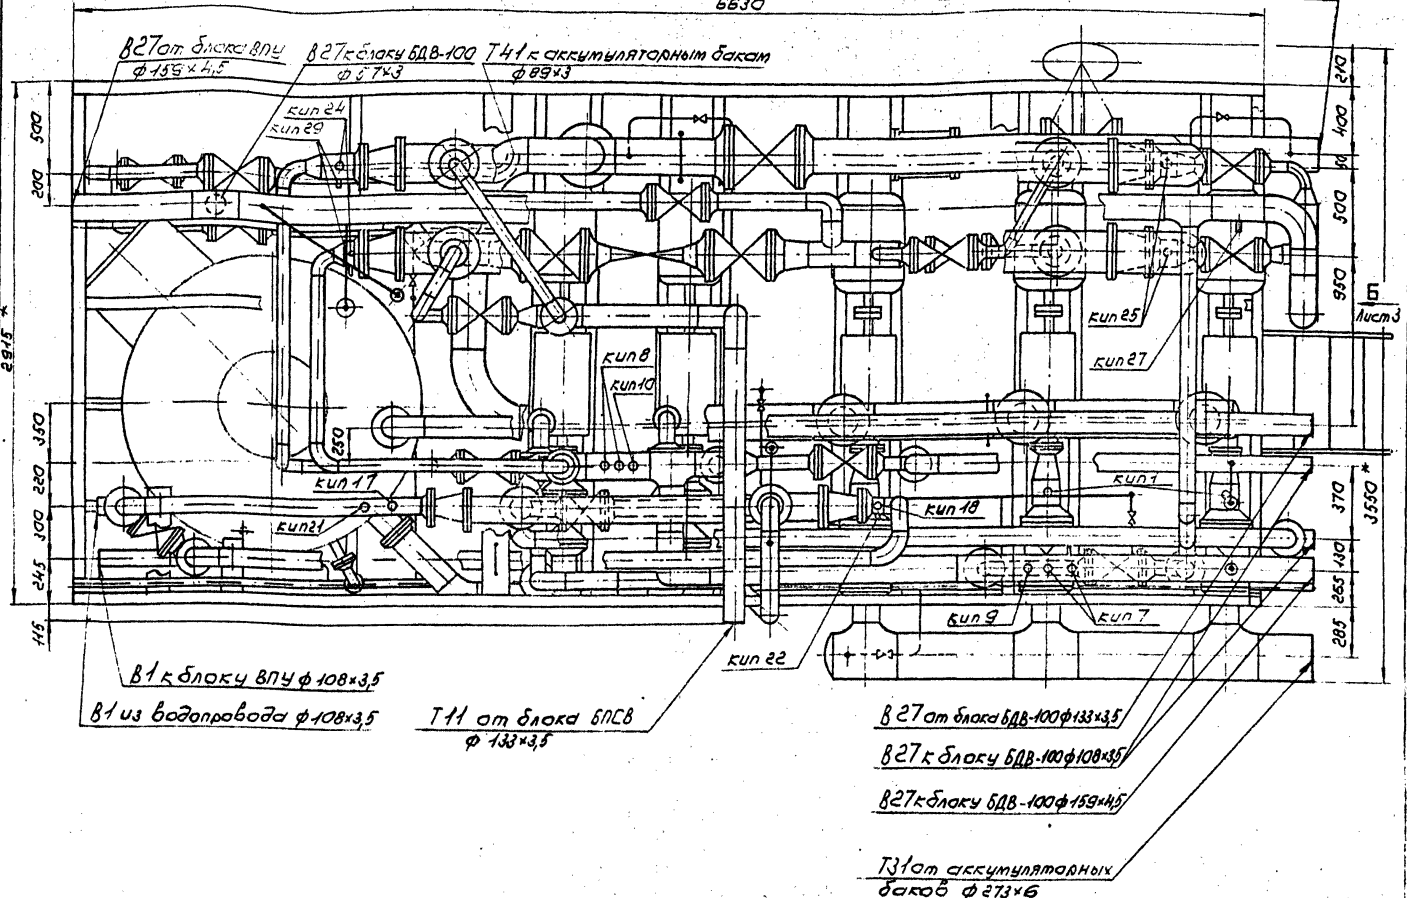 6630
В27 от блока ВПУ
ф 159×4,5
В27 к блоку БДВ-100
ф 57×3
Т41 к аккумуляторным бакам
ф 89×3
кип 24
кип 29
500
200
2915 *
350
220
300
245
115
250
210
400
500
950
Б
Лист 3
370
3550 *
265
285
кип 25
кип 27
кип 8
кип 10
кип 17
кип 21
кип 1
кип 18
кип 9
кип 7
кип 22
В1 к блоку ВПУ ф 108×3,5
В1 из водопровода ф 108×3,5
Т11 от блока БПСВ
ф 133×3,5
В27 от блока БДВ-100 ф 133×3,5
В27 к блоку БДВ-100 ф 108×3,5
В27 к блоку БДВ-100 ф 159×4,5
Т31 от аккумуляторных
баков ф 273×6